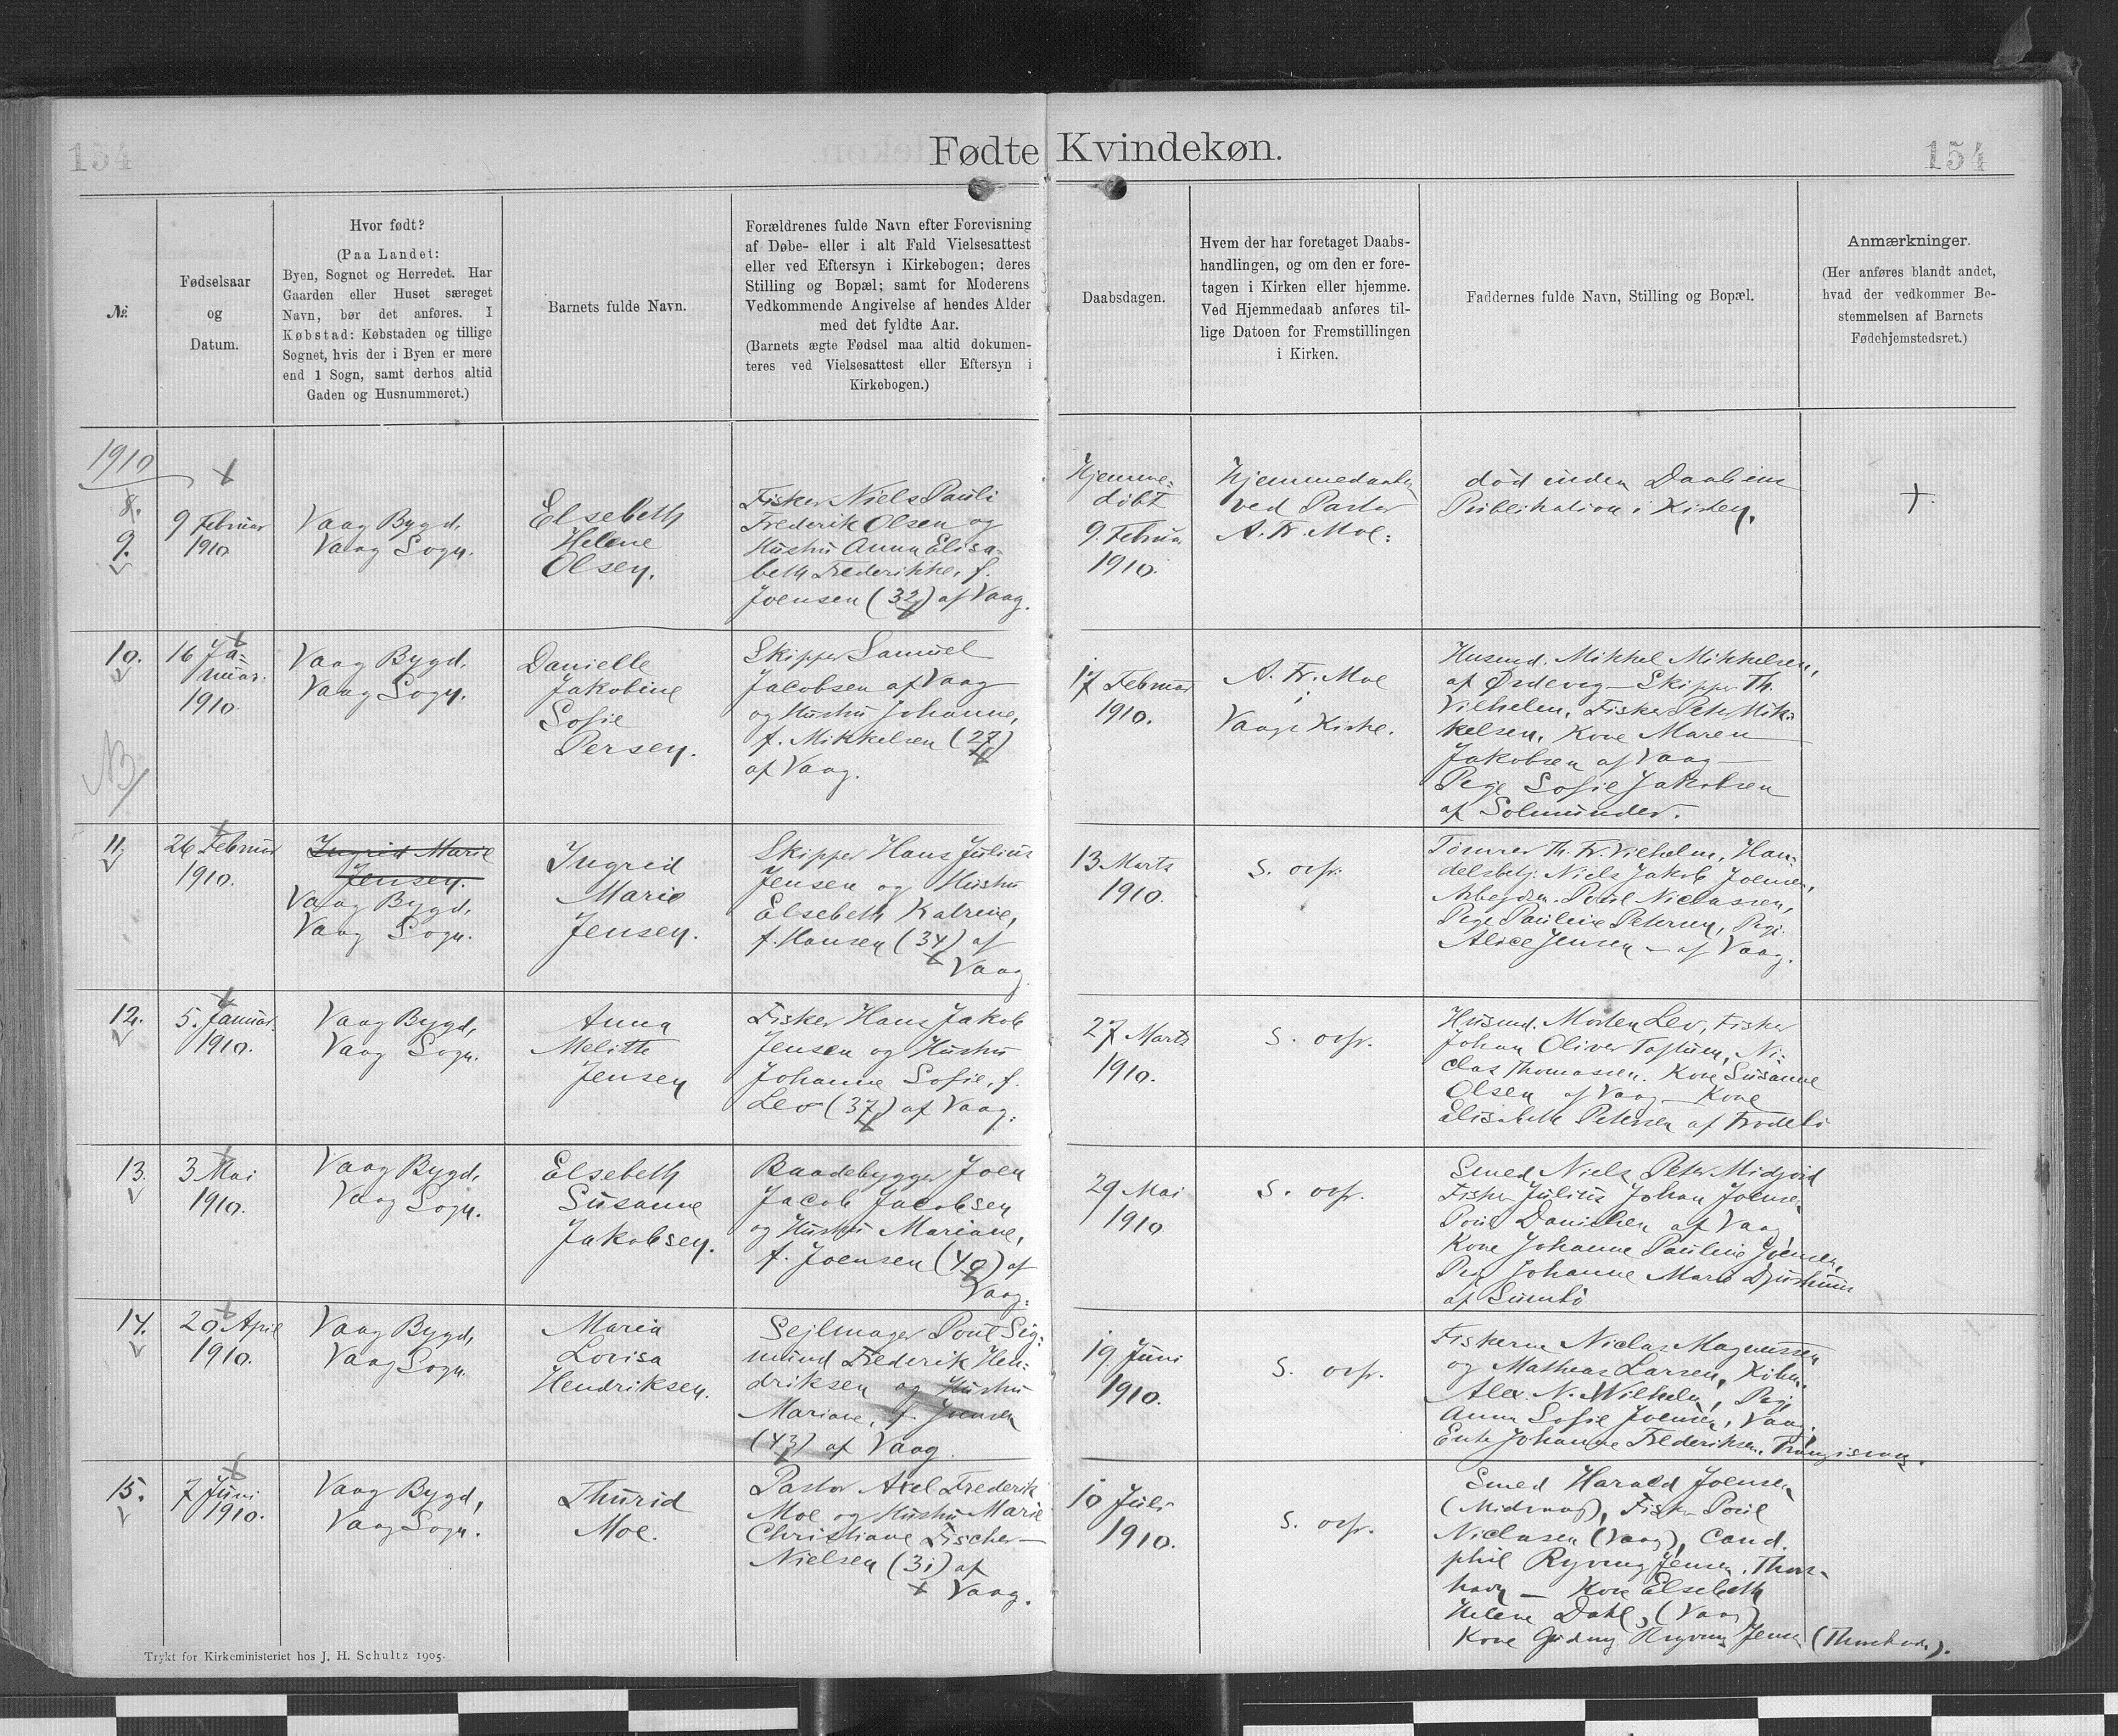 154
Fødte Kvindekøn.
154
№
Fødselsaar
og
Datum.
Hvor født?
(Paa Landet:
Byen, Sognet og Herredet. Har
Gaarden eller Huset særeget
Navn, bør det anføres. I
Købstad: Købstaden og tillige
Sognet, hvis der i Byen er mere
end 1 Sogn, samt derhos altid
Gaden og Husnummeret.)
Barnets fulde Navn.
Forældrenes fulde Navn efter Forevisning
af Døbe- eller i alt Fald Vielsesattest
eller ved Eftersyn i Kirkebogen; deres
Stilling og Bopæl; samt for Moderens
Vedkommende Angivelse af hendes Alder
med det fyldte Aar.
(Barnets ægte Fødsel maa altid dokumen-
teres ved Vielsesattest eller Eftersyn i
Kirkebogen.)
Daabsdagen.
Hvem der har foretaget Daabs-
handlingen, og om den er fore-
tagen i Kirken eller hjemme.
Ved Hjemmedaab anføres til-
lige Datoen for Fremstillingen
i Kirken.
Faddernes fulde Navn, Stilling og Bopæl.
Anmærkninger.
(Her anføres blandt andet,
hvad der vedkommer Be-
stemmelsen af Barnets
Fødehjemstedsret.)
1910
8.
9.
9 Februar
1910
Vaag Bygd,
Vaag Sogn.
Elsebeth
Helene
Olsen.
Fisker Niels Pauli
Frederik Olsen og
Hustru Anna Elisa-
beth Frederikke, f.
Joensen (32) af Vaag.
Hjemme-
døbt
9. Februar
1910.
Hjemmedaaben
ved Pastor
A. Fr. Moe.
død inden Daabens
Publikation i Kirken.
†
10.
NB
16 Ja-
nuar.
1910.
Vaag Bygd,
Vaag Sogn.
Danielle
Jakobine
Sofie
Persen.
Skipper Samuel
Jacobsen af Vaag
og Hustru Johanne,
f. Mikkelsen (27)
af Vaag.
17 Februar
1910.
A. Fr. Moe
i
Vaags Kirke.
Husmd. Mikkel Mikkelsen,
af Ørdevig - Skipper Th.
Vilhelm, Fisker Peter Mik-
kelsen, Kone Maren
Jakobsen af Vaag -
Pige Sofie Jakobsen
af Solmunder.
11.
26 Februar
1910.
Ingrid Marie
Jensen.
Vaag Bygd,
Vaag Sogn.
Ingrid
Marie
Jensen.
Skipper Hans Julius
Jensen og Hustru
Elsebeth Katrine,
f. Hansen (34) af
Vaag
13 Marts
1910.
s. ovfr.
Tømrer Th. Fr. Vilhelm, Han-
delsbetj. Niels Jakob Joensen,
Arbejdsm. Poul Niclassen,
Pige Pauline Petersen, Pige
Alice Jensen - af Vaag.
12.
5. Januar.
1910.
Vaag Bygd,
Vaag Sogn.
Anna
Melitte
Jensen
Fisker Hans Jakob
Jensen og Hustru
Johanne Sofie, f.
Lev (37) af Vaag.
27 Marts
1910.
s. ovfr.
Husmd. Morten Lev, Fisker
Johan Oliver, Ni-
clas Thomassen. Kone Susanne
Olsen af Vaag - Kone
Elisabeth Petersen af Frodebø
13.
3 Mai
1910.
Vaag Bygd,
Vaag Sogn.
Elsebeth
Susanne
Jakobsen.
Baadebygger Joen
Jacob Jacobsen
og Hustru Mariane,
f. Joensen (40) af
Vaag.
29 Mai
1910
s. ovfr.
Smed Niels Peter Midjord
Fisker Julius Johan Joensen
Poul Danielsen af Vaag,
Kone Johanne Pauline Joensen,
Pige Johanne Marie Djurhuus
af Sumbø
14.
20 April
1910.
Vaag Bygd,
Vaag Sogn.
Maria
Lovisa
Hendriksen.
Sejlmager Poul Sig-
mund Frederik Hen-
driksen og Hustru
Mariane, f. Joensen
(43) af Vaag.
19 Juni
1910.
s. ovfr.
Fiskerne Niclas Magnussen
og Mathias Larsen, Købm.
Alex. N. Wilhelm, Pige
Anna Sofie Joensen, Vaag.
Enke Johanne Frederiksen, Trangisvaag.
15.
7 Juni
1910.
Vaag Bygd,
Vaag Sogn.
Thurid
Moe.
Pastor Axel Frederik
Moe og Hustru Marie
Christiane Fischer-
Nielsen (31) af
Vaag.
10 Juli
1910.
s. ovfr.
Smed Harald Joensen
(Midvaag), Fisker Poul
Niclasen (Vaag), Cand.
phil Ryving Jensen, Thors-
havn - Kone Elsebeth
Helene Dahl, (Vaag)
Kone Gudny Ryving Jensen (Thorshavn).
Trykt for Kirkeministeriet hos J. H. Schultz 1905.